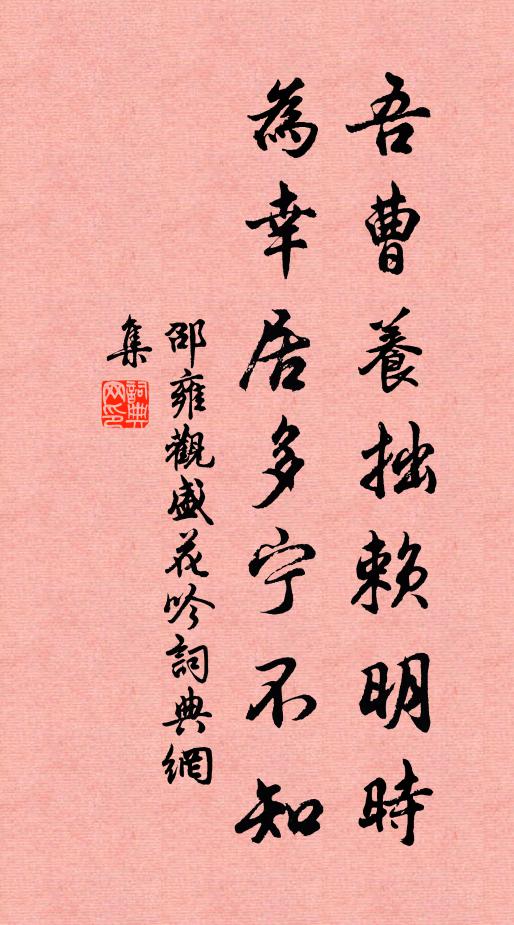 吾曹養拙賴明時
為幸居多宁不知
邵雍觀盛花吟詞典網
集
詞典
网印